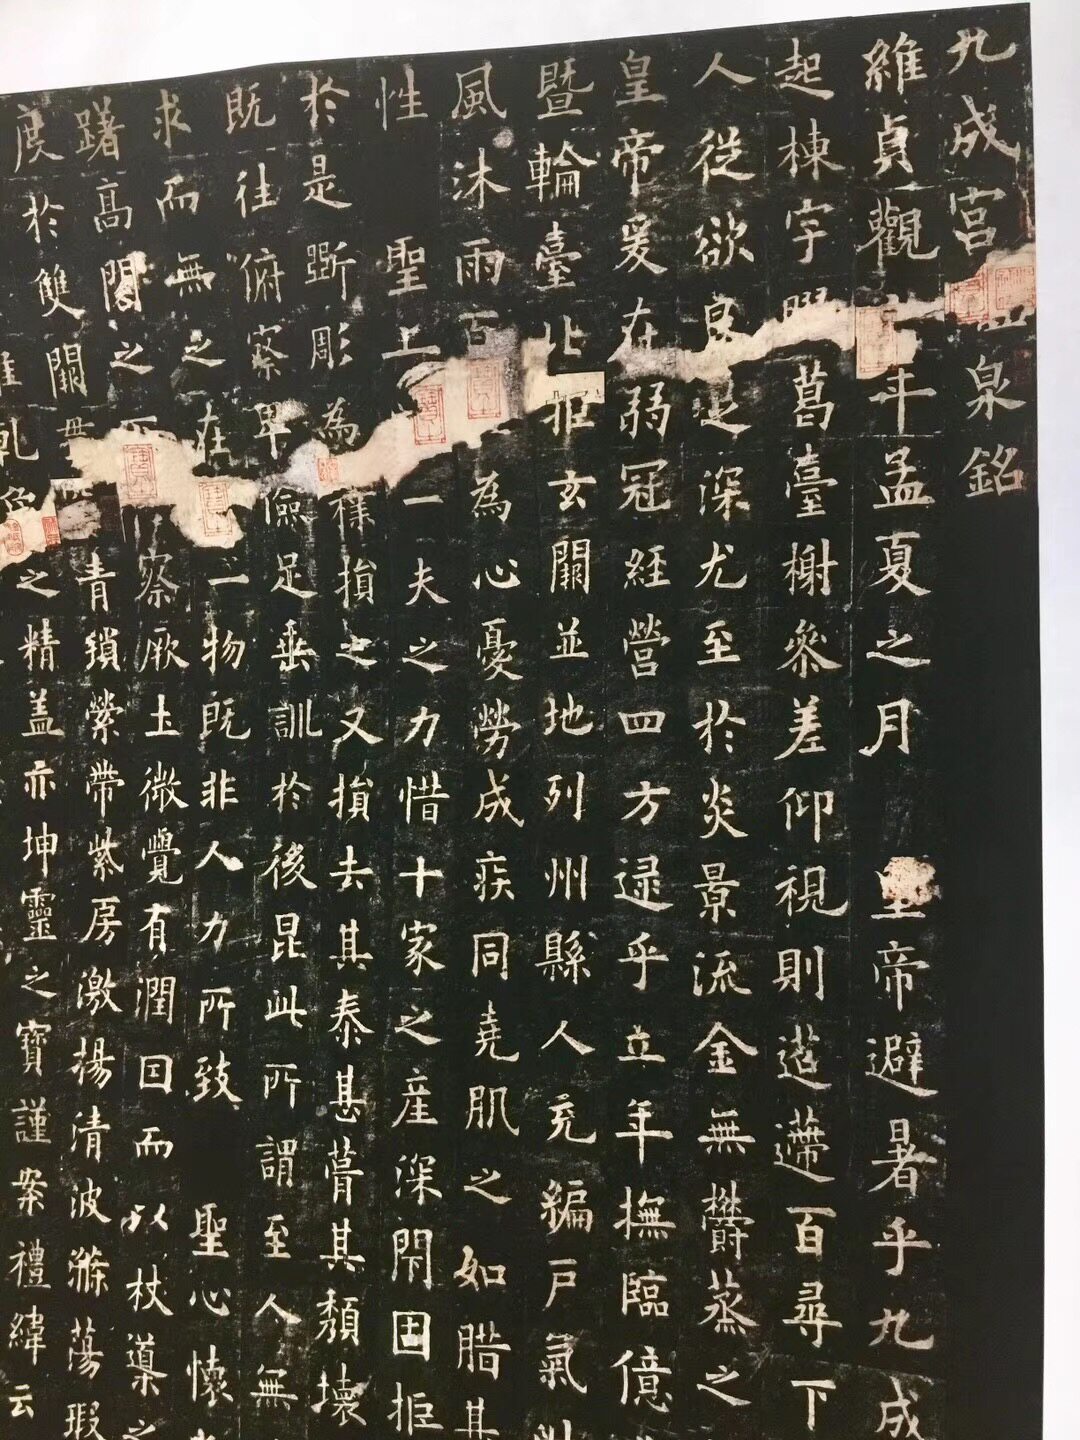 九成宮泉銘
維貞觀年孟夏之月 皇帝避暑乎九成
起棟宇葛臺榭參差仰視則迢遰百尋下
人從欲良足深尤至於炎景流金無鬱蒸之
皇帝爰在弱冠經營四方逮乎立年撫臨億
暨輪臺北拒玄闕並地列州縣人充編戶氣
風沐雨百為心憂勞成疾同堯肌之如腊甚
性 聖上一夫之力惜十家之產深閇固拒
於是斵彫為樸損之又損去其泰甚葺其頹壞
既往俯察卑儉足垂訓於後昆此所謂至人無
求而無之在一物既非人力所致 聖心懷
躇高閣之察厥土微覺有潤因而以杖導之
度於雙闕青瑣縈帶紫房激揚清波滌蕩瑕
乾之精蓋亦坤靈之寶謹案禮緯云